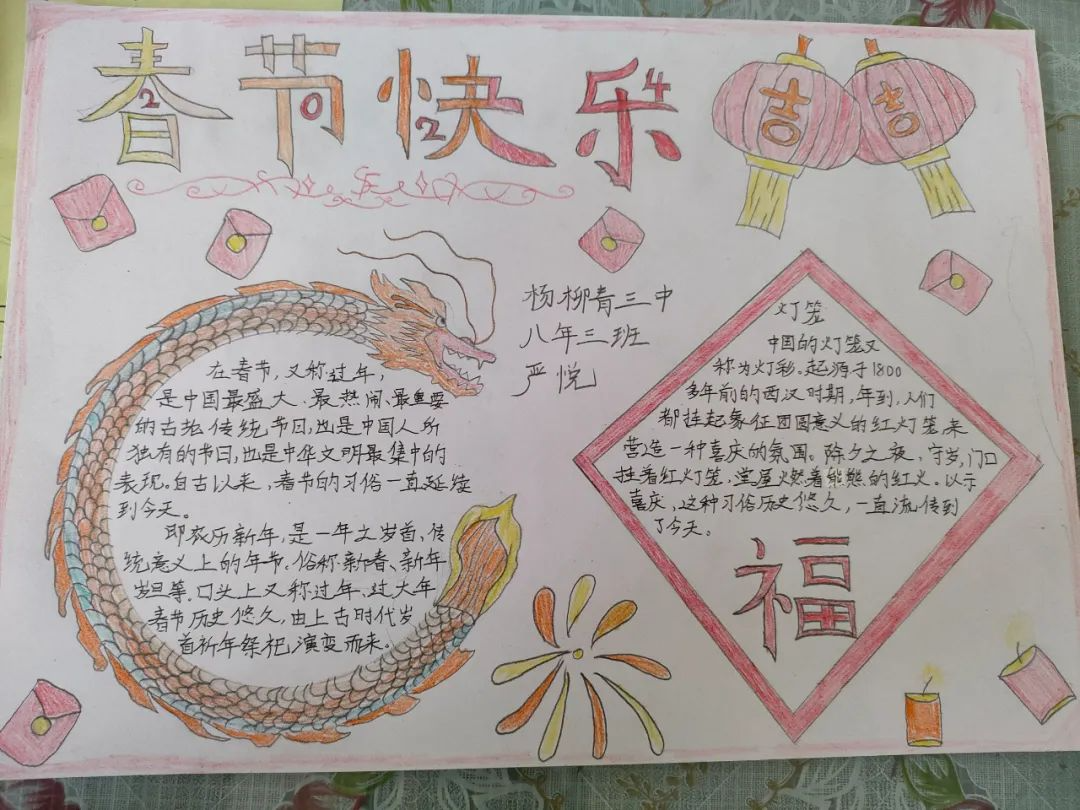 春节快乐
2024
吉 吉
杨柳青三中
八年三班
严悦
在春节,又称过年,
是中国最盛大、最热闹、最重要
的古老传统节日,也是中国人所
独有的节日,也是中华文明最集中的
表现。自古以来,春节的习俗一直延续
到今天。
即农历新年,是一年之岁首、传
统意义上的年节。俗称新春、新年
岁旦等。口头上又称过年、过大年
春节历史悠久,由上古时代岁
首祈年祭祀演变而来。
灯笼
中国的灯笼又
称为灯彩。起源于1800
多年前的西汉时期,年到,人们
都挂起象征团圆意义的红灯笼,来
营造一种喜庆的氛围。除夕之夜,守岁,门口
挂着红灯笼,堂屋燃着熊熊的红火。以示
喜庆,这种习俗历史悠久,一直流传到
了今天。
福